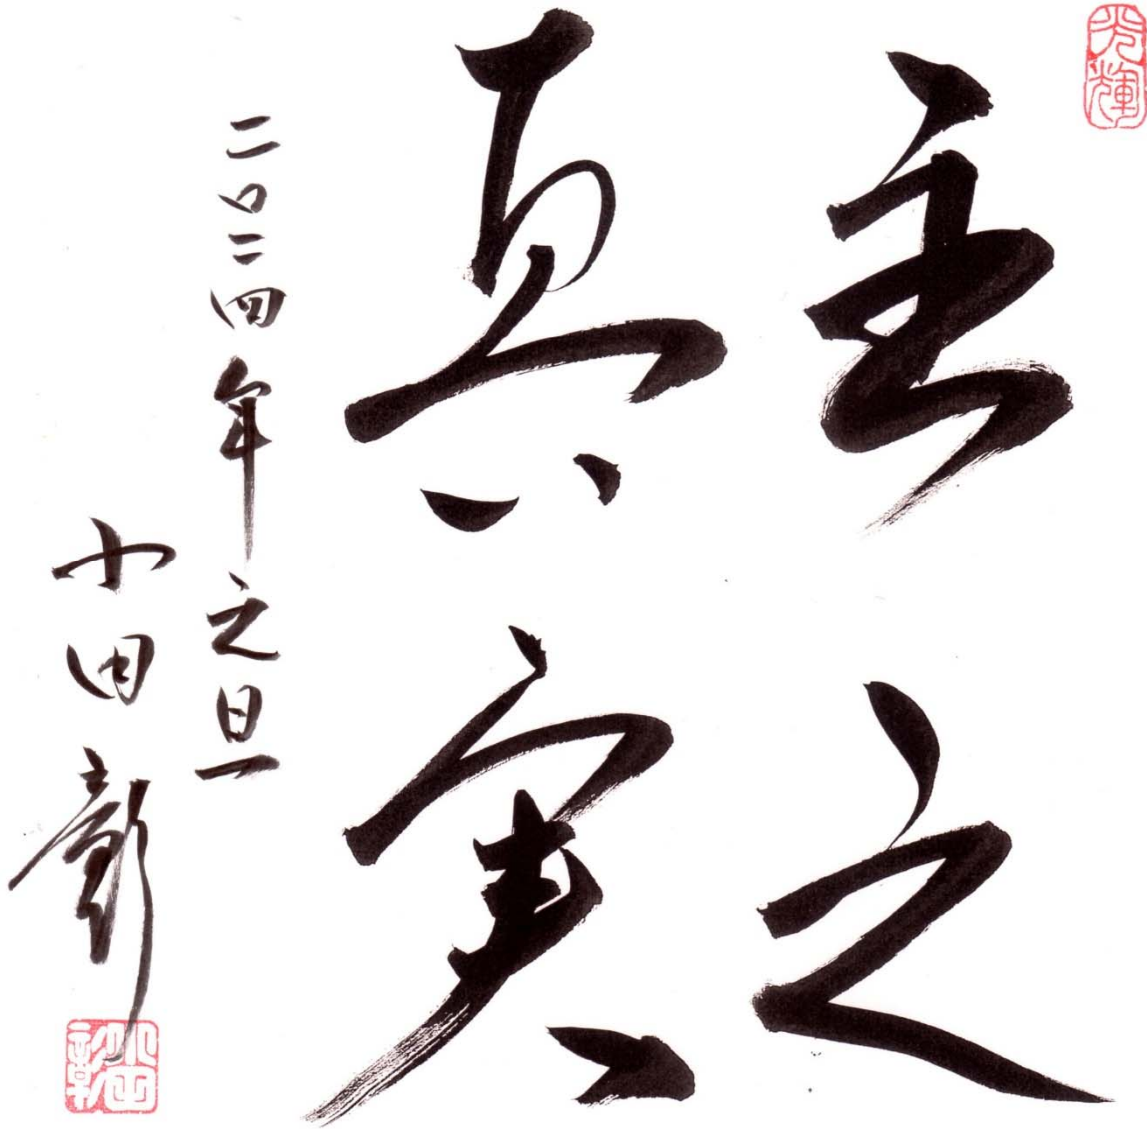 光輝
主之
真実
二〇二四年之旦
小田彰
小田彰